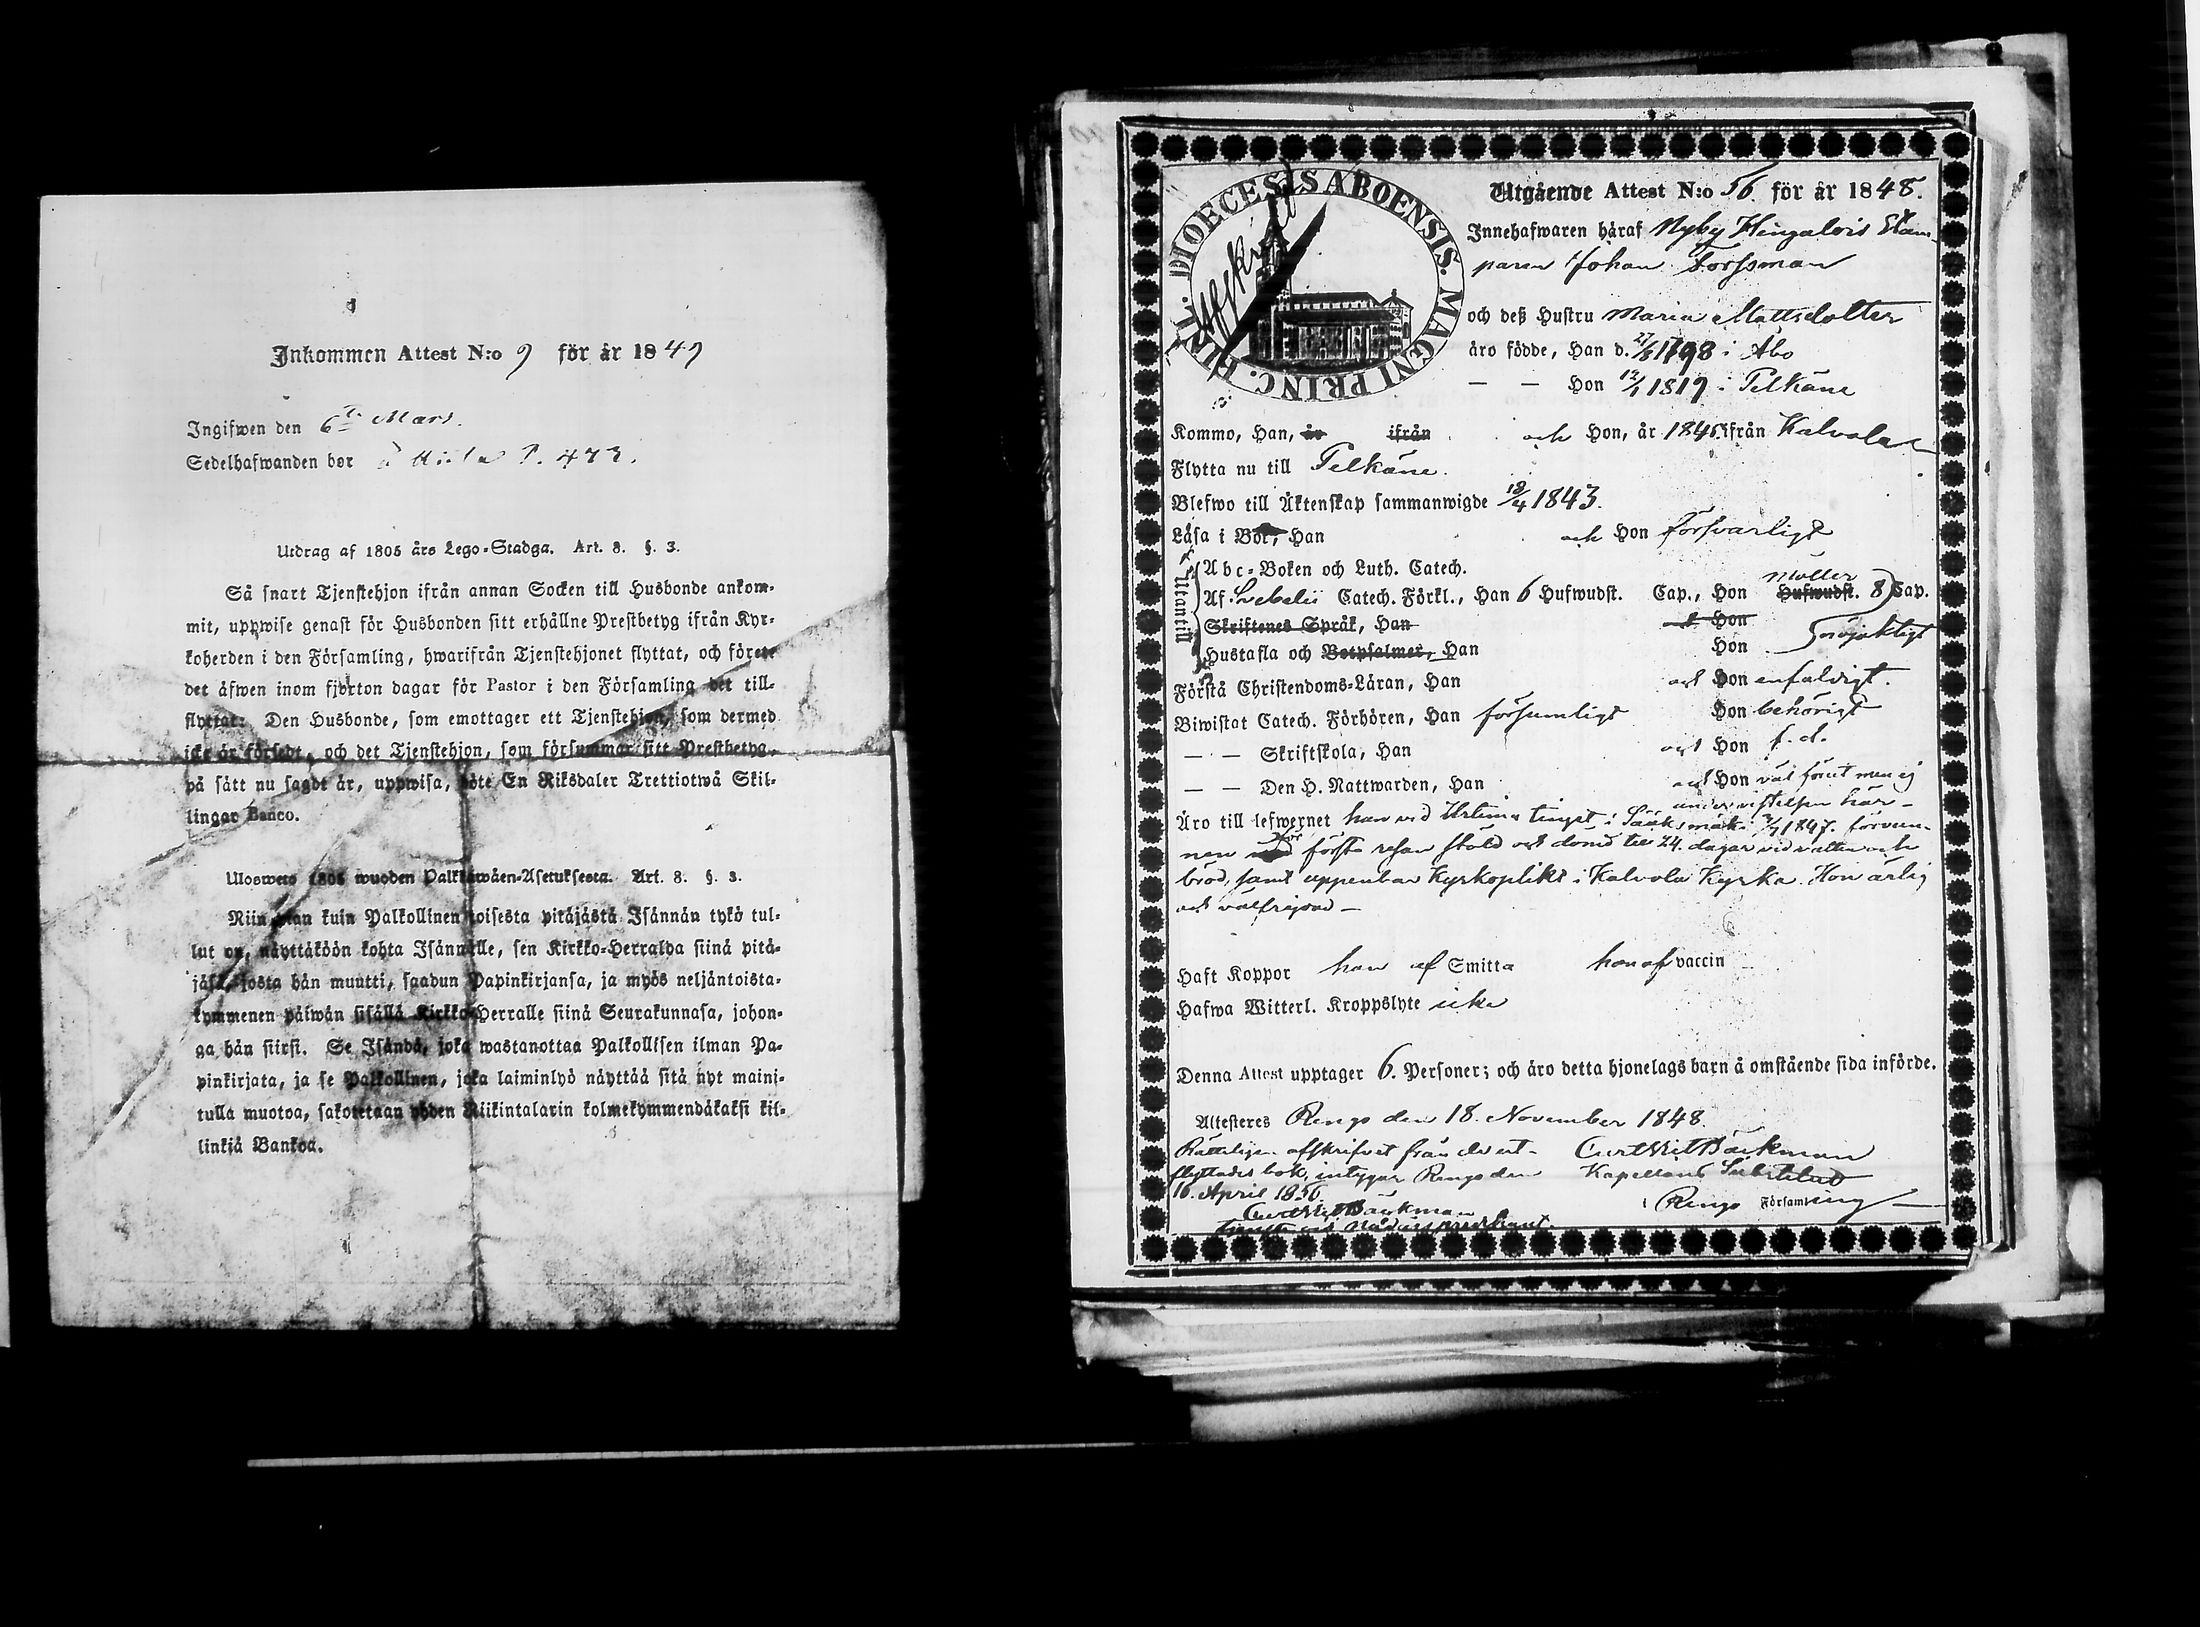 Inkommen Attest N:o 9 för år 1849
Ingifwen den 6te Mars.
Sedelhafwanden bor å P. 473.
Utdrag af 1805 års Lego-Stadga. Art. 8. §. 3.
Så snart Tjenstehjon ifrån annan Socken till Husbonde ankom-
mit, uppwise genast för Husbonden sitt erhållne Prestbetyg ifrån Kyr-
koherden i den Församling, hwarifrån Tjenstehjonet flyttat, och förete
det åfwen inom fjorton dagar för Pastor i den Församling det till-
flyttat: Den Husbonde, som emottager ett Tjenstehjon, som dermed
icke är försedt, och det Tjenstehjon, som försummar sitt Prestbetyg,
på sätt nu sagdt är, uppwisa, böte En Riksdaler Trettiotwå Skil-
lingar Banco.
Uloswetо 1805 wuoden Palkkawäen-Asetuksesta. Art. 8. §. 3.
Niin pian kuin Palkollinen toisesta pitäjästä Isännän tykö tul-
lut on, näyttäköön kohta Isännälle, sen Kirkko-Herralda siinä pitä-
jäsä, josta hän muutti, saadun Papinkirjansa, ja myös neljäntoista-
kymmenen päiwän sisällä Kirkko-Herralle siinä Seurakunnasa, johon-
ga hän siirsi. Se Isändä, joka wastanottaa Palkollisen ilman Pa-
pinkirjata, ja se Palkollinen, joka laiminlyö näyttää sitä nyt maini-
tulla muotoa, sakotetaan yhden Riikintalarin kolmekymmendäkaksi kil-
linkiä Bankoa.
DIOECESIS ABOENSIS. MAGNI PRINC. FINL.
Afskrift
Utgående Attest N:o 56. för år 1848.
Innehafwaren häraf Nyby Hingalois Stam-
paren Johan Forssman
och deß Hustru Maria Mattsdotter
äro födde, Han d. 27/8 1798 i Åbo
— — Hon 12/1 1819 i Pelkäne
Kommo, Han, år ifrån och Hon, år 1846 ifrån Kalvola
Flytta nu till Pelkäne.
Blefwo till Äktenskap sammanwigde 18/4 1843.
Läsa i Bok, Han och Hon försvarligt
Utantill
Abc-Boken och Luth. Catech.
Af Sebelii Catech. Förkl., Han 6 Hufwudst. Cap., Hon Möller Hufwudst. 8 Cap.
Skriftenes Språk, Han och Hon
Hustafla och Botpsalmer, Han Hon Sorgfäktigt
Förstå Christendoms-Läran, Han och Hon enfaldigt.
Biwistat Catech. Förhören, Han försumligt Hon behörigt
— — Skriftskola, Han och Hon f. d.
— — Den H. Nattwarden, Han och Hon väl förut men ej
under vistelsen här-
Äro till lefwernet han vid Urtima tinget i Sääksmäki 7/7 1847. förvun-
nen för första resan stöld och dömd till 24. dagar vid vatten och
bröd, samt uppenbar Kyrkoplikt i Kalvola Kyrka. Hon ärlig
och välfrejdad —
Haft Koppor han af Smitta hon af vaccin
Hafwa Witterl. Kroppslyte icke
Denna Attest upptager 6. Personer; och äro detta hjonelags barn å omstående sida införde.
Attesteres Rengo den 18. November 1848.
Rätteligen afskrifvet från de ut- Curt Wilt Bäckman
flyttades bok, intygar Rengo den Kapellans Substitut
16. April 1850. i Rengo Församling
Curt Wilt Bäckman